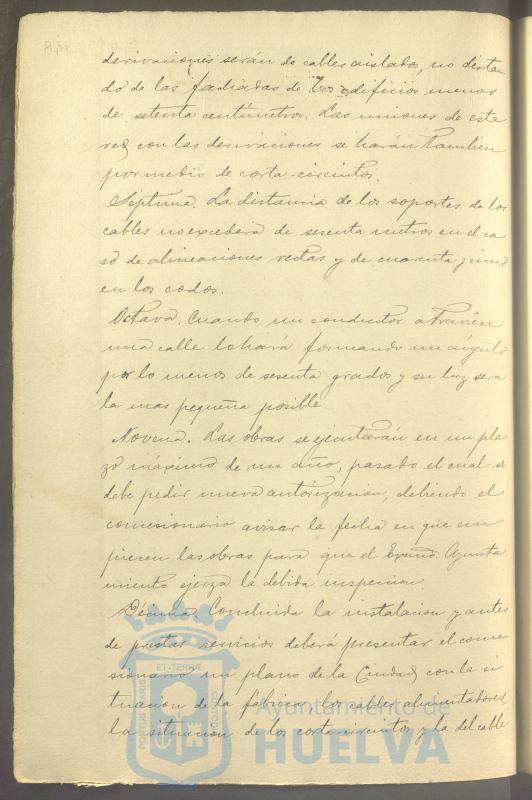 derivaciones serán de cables aislados, no distan
do de las fachadas de los edificios menos
de setenta centímetros. Las uniones de este
red con las derivaciones se harán tambien
por medio de corta-circuitos.
Séptima. La distancia de los soportes de los
cables no excederá de sesenta metros en el ca
so de alineaciones rectas y de cuarenta y cinco
en los codos.
Octava. Cuando un conductor atraviese
una calle lo hará formando un ángulo
por lo menos de sesenta grados y su luz será
la mas pequeña posible
Novena. Las obras se ejecutarán en un pla
zo máximo de un año, pasado el cual se
debe pedir nueva autorizacion, debiendo el
concesionario avisar la fecha en que em
piecen las obras para que el Excmo. Ayunta
miento ejerza la debida inspeccion.
Décima. Concluida la instalacion y antes
de prestar servicios deberá presentar el conce
sionario un plano de la Ciudad con la si
tuacion de la fábrica, los cables alimentadores,
la situacion de los corta-circuitos y la del cable
ET TERRÆ
PORTUS MARIS
CUSTODIA
Ayuntamiento de
HUELVA